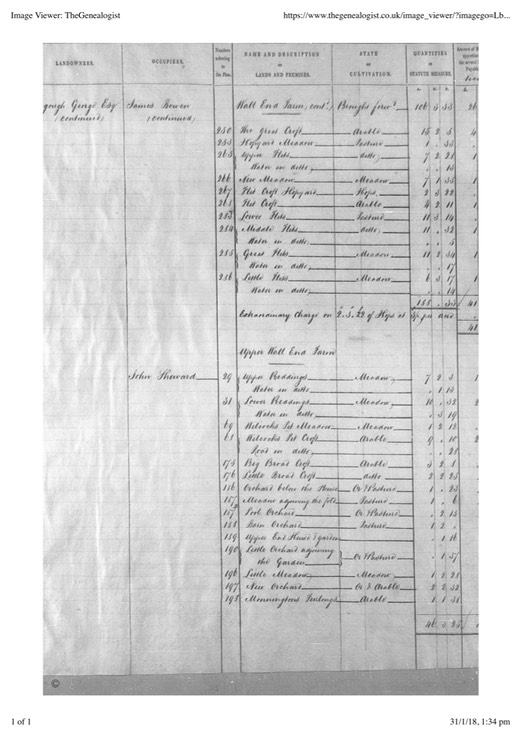 Image Viewer: TheGenealogist https://www.thegenealogist.co.uk/image_viewer/?imagego=Lb...
LANDOWNERS. OCCUPIERS. Numbers referring to the Plan. NAME AND DESCRIPTION OF LANDS AND PREMISES. STATE OF CULTIVATION. QUANTITIES IN STATUTE MEASURE.
A. R. P. £.
George Esqr James Bowen Wall End Farm, contd. Brought forwd. 106 3 33 26
(continued) (continued)
250 The great Croft Arable 15 2 5 4
253 Hopyard Meadow Pasture 1 . 35
263 Upper Fless ditto 7 2 21 1
Water in ditto . . 15
266 New Meadow Meadow 7 1 35 1
267 Fless Croft Hopyard Hops 2 3 22
268 Fless Croft Arable 4 2 11 1
283 Lower Fless Pasture 11 3 14 1
284 Middle Fless ditto 11 . 32 1
Water in ditto . . 5
285 Great Fless Meadow 11 2 34 1
Water in ditto . . 17
286 Little Fless Meadow 6 3 17 1
Water in ditto . . 14
188 . 41
Extraordinary Charge on 2. 3. 22 of Hops at per acre
41
Upper Wall End Farm
John Sheward 29 Upper Meadow 7 2 3 1
Water in ditto . 1 15
31 Lower Meadow 10 . 32 2
Water in ditto . 3 19
69 Wilcocks Pit Meadow Meadow 1 2 15
61 Wilcocks Pit Croft Arable 9 . 10 2
Road in ditto . . 21
175 Big Broad Croft Arable 3 2 1
176 Little Broad Croft ditto 2 2 25
186 Orchard below the House Or & Pasture 1 . 25
187 Meadow adjoining the fold Pasture 1 . 6
Pool Orchard Or & Pasture . 2 15
188 Barn Orchard Pasture 1 2 .
189 Upper End House & garden . 1 16
190 Little Orchard adjoining
the Garden Or & Pasture . 1 37
196 Little Meadow Meadow 1 2 21
197 New Orchard Or & Arable 2 2 32
198 Arable 1 1 31
46 3
©
1 of 1 31/1/18, 1:34 pm